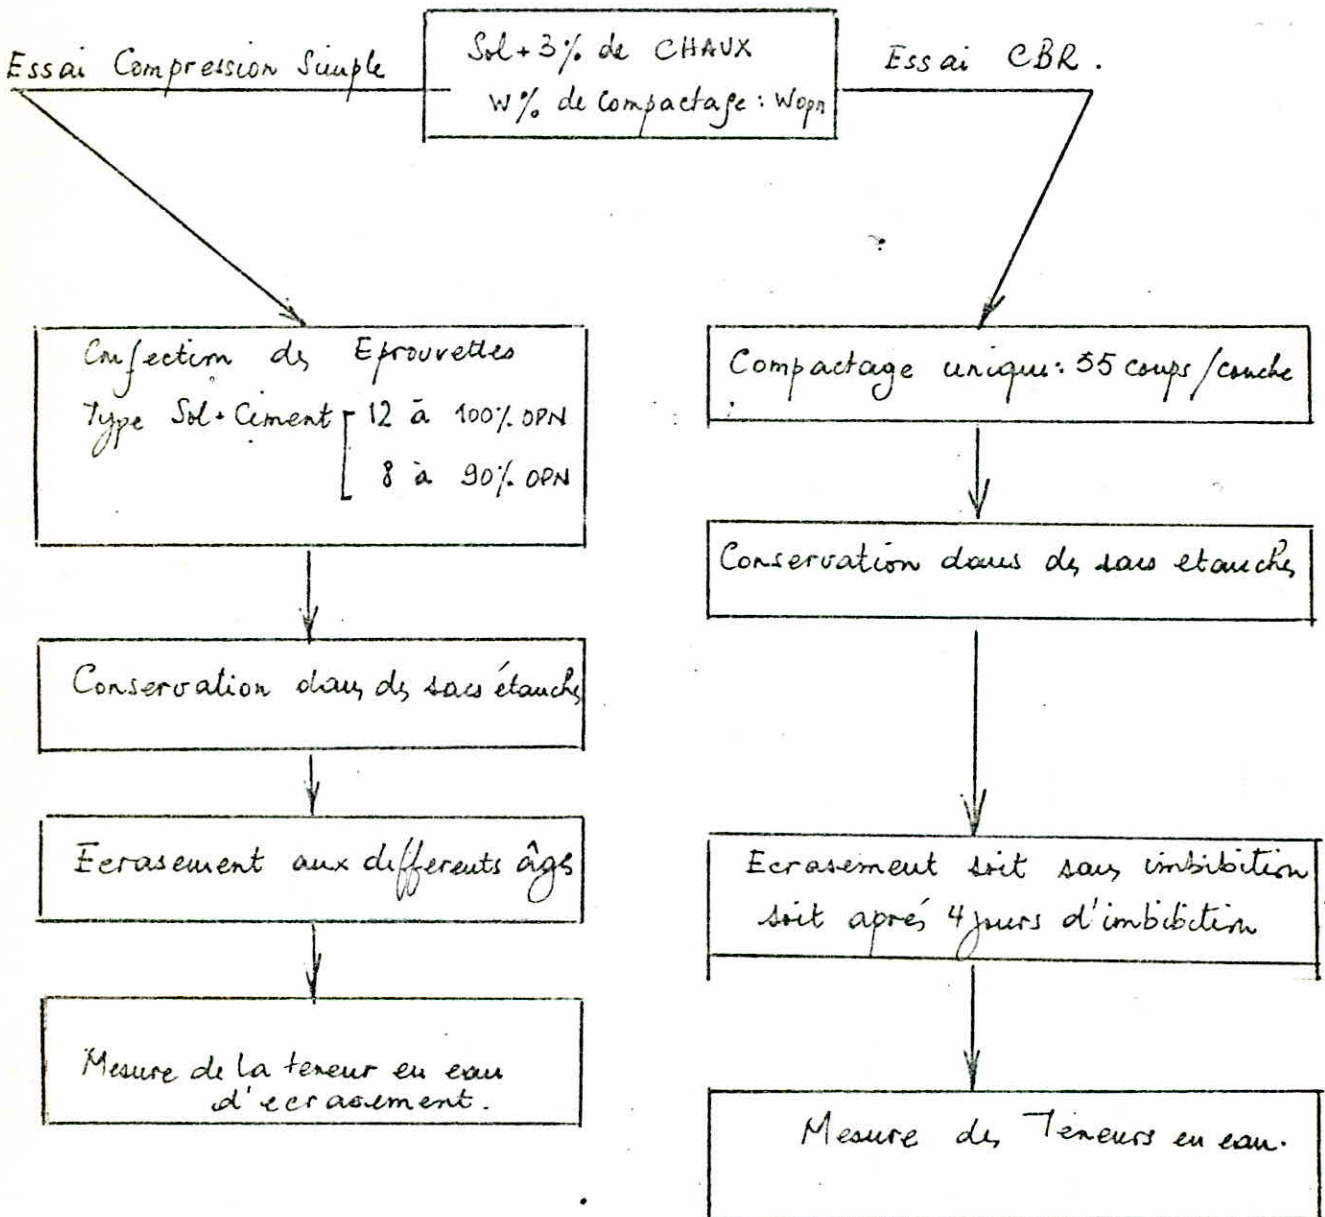 Essai Compression Simple
Sol + 3% de CHAUX
W% de compactage : Wopn
Essai CBR.
Confection des Eprouvettes
Type Sol + Ciment [ 12 à 100% OPN
8 à 90% OPN
Conservation dans des sacs étanches
Ecrasement aux differents âges
Mesure de la teneur en eau
d'ecrasement.
Compactage unique : 55 coups / couche
Conservation dans des sacs etanches
Ecrasement soit sans imbibition
soit aprés 4 jours d'imbibition
Mesure des Teneurs en eau.